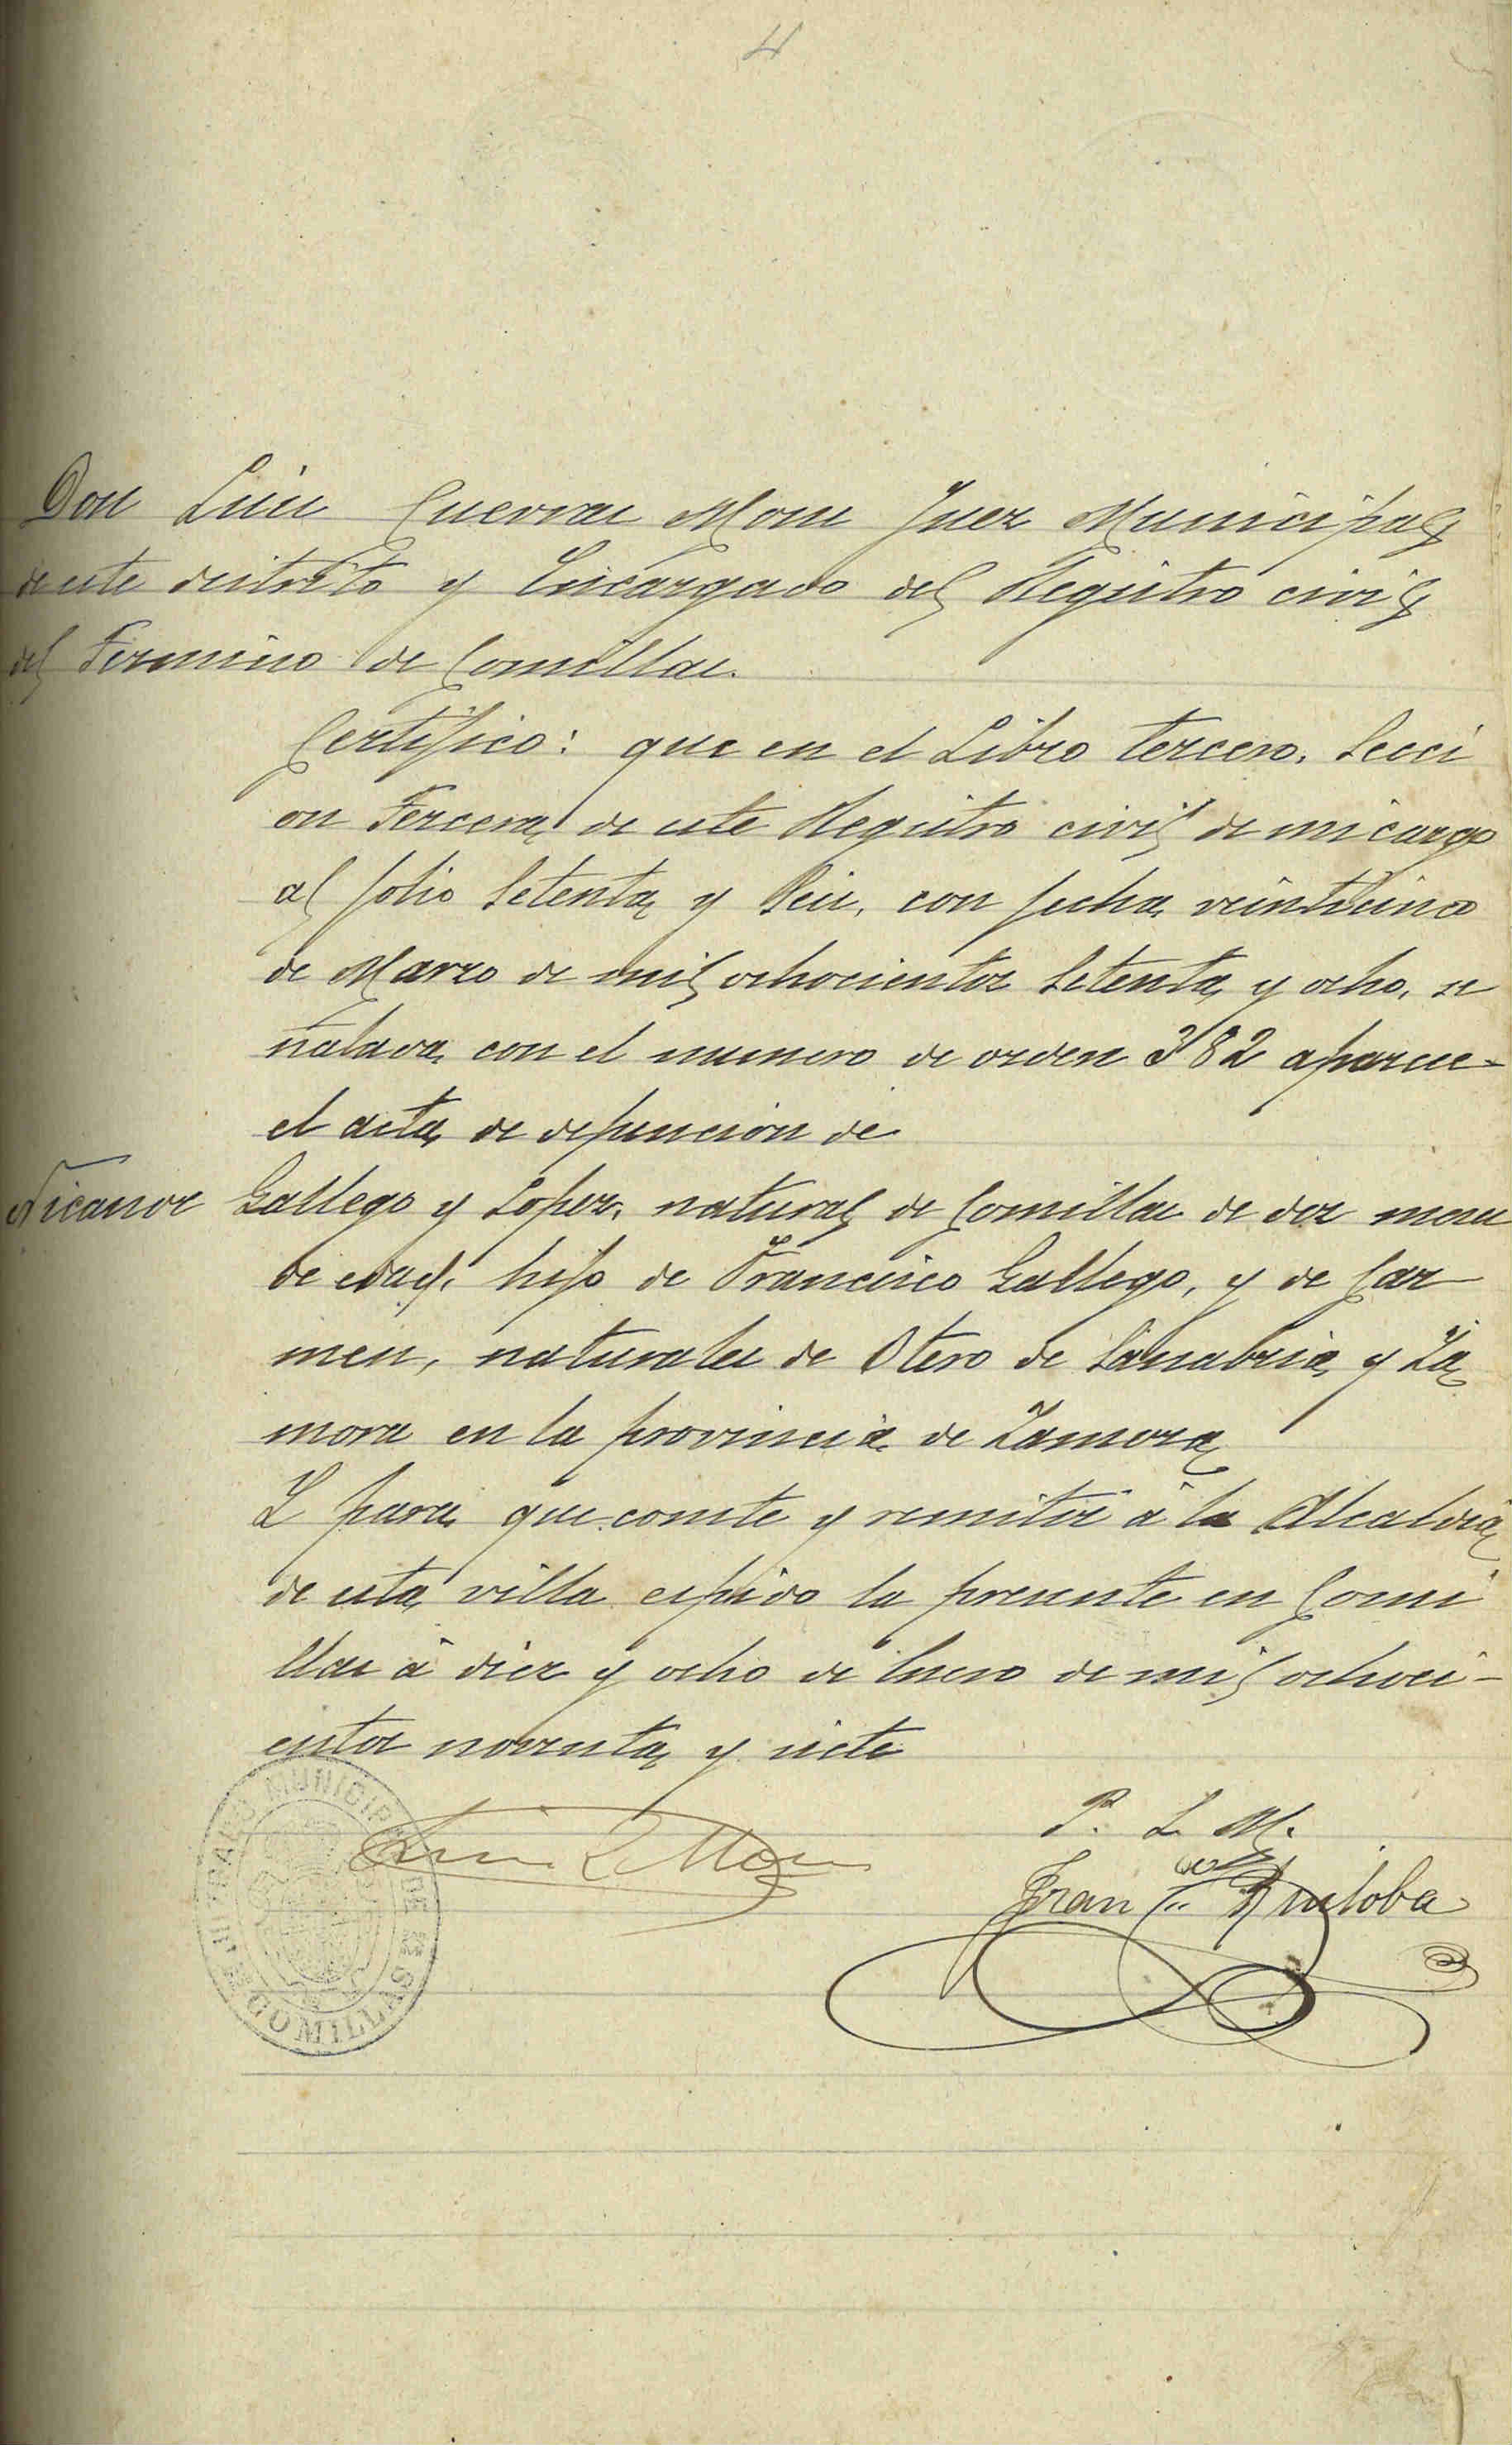 4
Don Luis Cuevas Mons Juez Municipal
de este distrito y Encargado del Registro civil
del Termino de Comillas.
Certifico: que en el Libro tercero, Secci
on Tercera de este Registro civil de mi cargo
al folio Setenta y Seis, con fecha veinticinco
de Marzo de mil ochocientos Setenta y ocho, se
ñalada con el numero de orden 382 aparece
el acta de defuncion de
Nicanor Gallego y Lopez, natural de Comillas de dos meses
de edad, hijo de Francisco Gallego, y de Car
men, naturales de Otero de Sanabria y Za
mora en la provincia de Zamora
Y para que conste y remitir á la Alcaldia
de esta villa espido la presente en Comi
llas á diez y ocho de Enero de mil ochoci-
entos noventa y siete
P. S. M.
Luis C. Mons
Fran co Ruiloba
JUZGADO MUNICIPAL DE COMILLAS